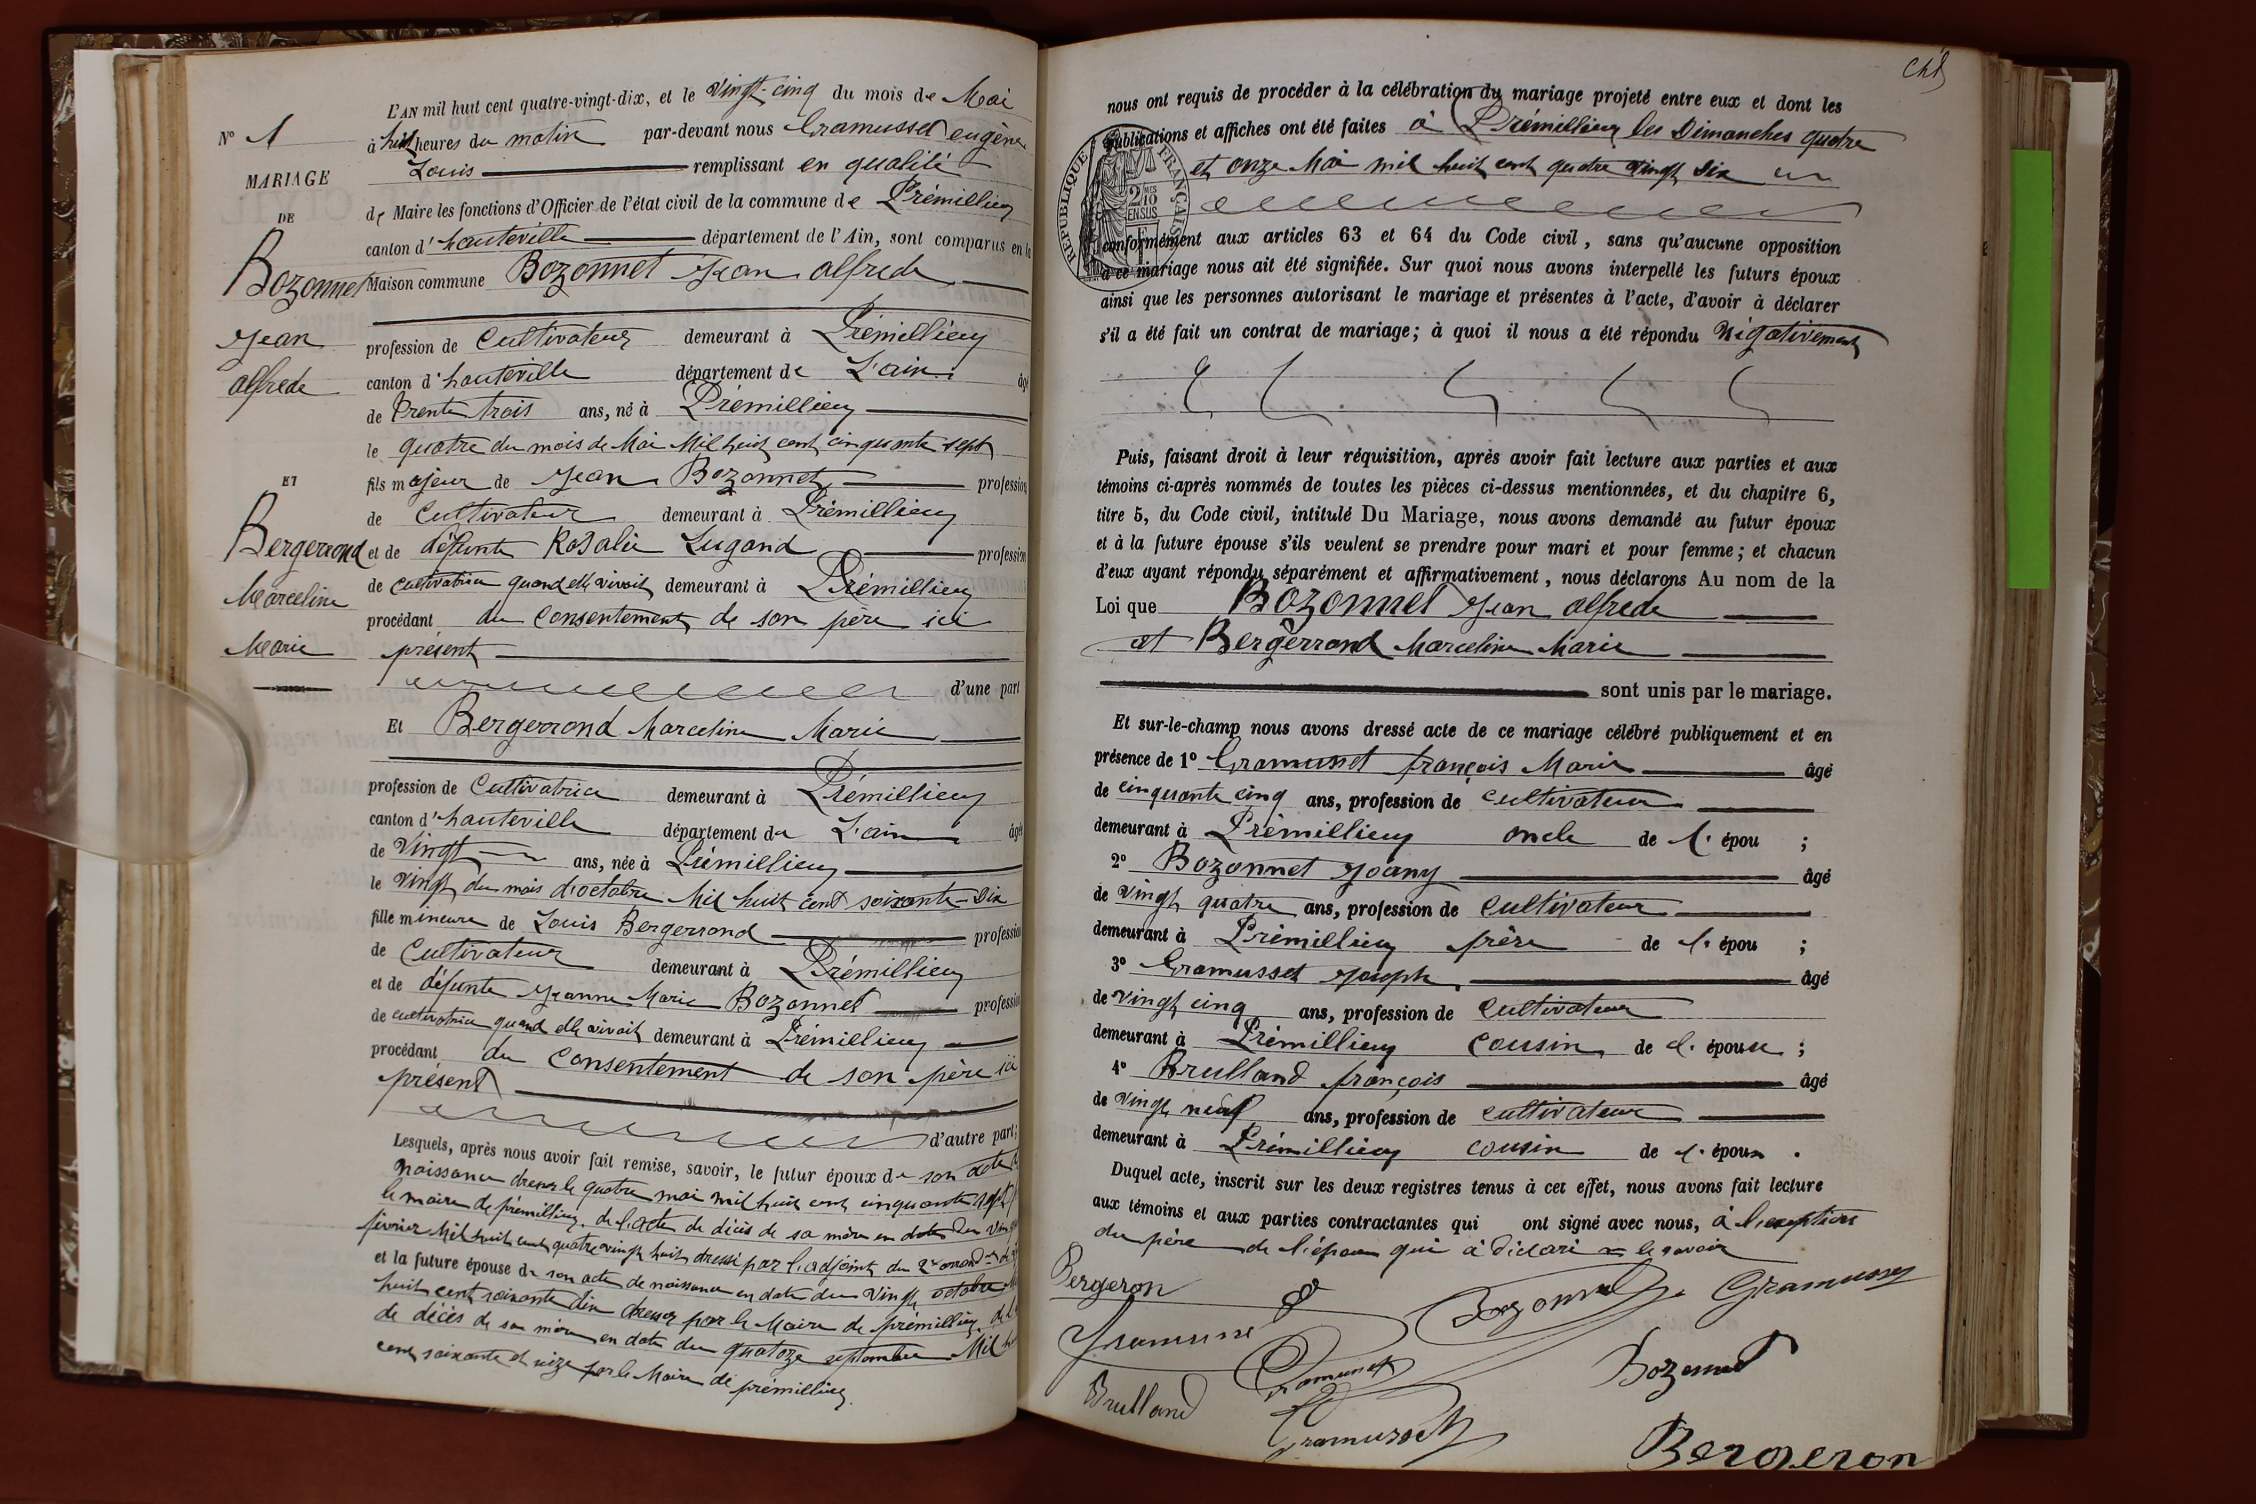 L'AN mil huit cent quatre-vingt-dix, et le vingt-cinq du mois de Mai
N° 1
à huit heures du matin par-devant nous Gramusset eugène
Louis remplissant en qualité
MARIAGE
de Maire les fonctions d'Officier de l'état civil de la commune de Prémillieu
DE
canton d'hauteville département de l'Ain, sont comparus en la
Bozonnet
Maison commune Bozonnet Jean alfrede
Jean
profession de Cultivateur demeurant à Prémillieu
alfrede
canton d'hauteville département de L'ain âgé
de trente trois ans, né à Prémillieu
le quatre du mois de Mai Mil huit cent cinquante sept
ET
fils majeur de Jean Bozonnet profession
de Cultivateur demeurant à Prémillieu
Bergerrond
et de défunte Rosalie Lugand profession
de cultivatrice quand elle vivait demeurant à Prémillieu
Marceline
procédant du Consentement de son père ici
Marie
présent
d'une part
Et Bergerrond Marceline Marie
profession de Cultivatrice demeurant à Prémillieu
canton d'hauteville département de L'ain âgée
de Vingt ans, née à Prémillieu
le vingt du mois d'octobre Mil huit cent soixante-Dix
fille mineure de Louis Bergerrond profession
de Cultivateur demeurant à Prémillieu
et de défunte Jeanne Marie Bozonnet profession
de cultivatrice quand elle vivait demeurant à Prémillieu
procédant du Consentement de son père ici
présent
d'autre part;
Lesquels, après nous avoir fait remise, savoir, le futur époux de son acte
naissance dressé le quatre mai mil huit cent cinquante sept
le maire de prémillieu, de l'acte de décès de sa mère en date du
février Mil huit cent quatre vingt huit dressé par l'adjoint du 2e arrond
et la future épouse de son acte de naissance en date du Vingt octobre
huit cent soixante dix dressé par le Maire de prémillieu,
de décès de sa mère en date du quatoze septembre Mil
cent soixante et seize par le Maire de prémillieu.
nous ont requis de procéder à la célébration du mariage projeté entre eux et dont les
publications et affiches ont été faites à Prémillieu les Dimanches quatre
et onze Mai mil huit cent quatre vingt dix
RÉPUBLIQUE FRANÇAISE
2 MES 10 EN SUS
conformément aux articles 63 et 64 du Code civil, sans qu'aucune opposition
à ce mariage nous ait été signifiée. Sur quoi nous avons interpellé les futurs époux
ainsi que les personnes autorisant le mariage et présentes à l'acte, d'avoir à déclarer
s'il a été fait un contrat de mariage; à quoi il nous a été répondu Négativement
Puis, faisant droit à leur réquisition, après avoir fait lecture aux parties et aux
témoins ci-après nommés de toutes les pièces ci-dessus mentionnées, et du chapitre 6,
titre 5, du Code civil, intitulé Du Mariage, nous avons demandé au futur époux
et à la future épouse s'ils veulent se prendre pour mari et pour femme; et chacun
d'eux ayant répondu séparément et affirmativement, nous déclarons Au nom de la
Loi que Bozonnet Jean alfrede
et Bergerrond Marceline Marie
sont unis par le mariage.
Et sur-le-champ nous avons dressé acte de ce mariage célébré publiquement et en
présence de 1° Gramusset françois Marie âgé
de cinquante cinq ans, profession de cultivateur
demeurant à Prémillieu oncle de l' épou ;
2° Bozonnet Joany âgé
de vingt quatre ans, profession de Cultivateur
demeurant à Prémillieu frère de l' épou ;
3° Gramusset Joseph âgé
de vingt cinq ans, profession de Cultivateur
demeurant à Prémillieu Cousin de l' épouse ;
4° Brulland françois âgé
de vingt neuf ans, profession de cultivateur
demeurant à Prémillieu cousin de l' époux .
Duquel acte, inscrit sur les deux registres tenus à cet effet, nous avons fait lecture
aux témoins et aux parties contractantes qui ont signé avec nous, à l'exeption
du père de l'époux qui a déclaré ne le savoir
Bergeron
Bozonnet
Gramusset
Gramusset
Bozonnet
Brulland
Gramusset
Bergeron